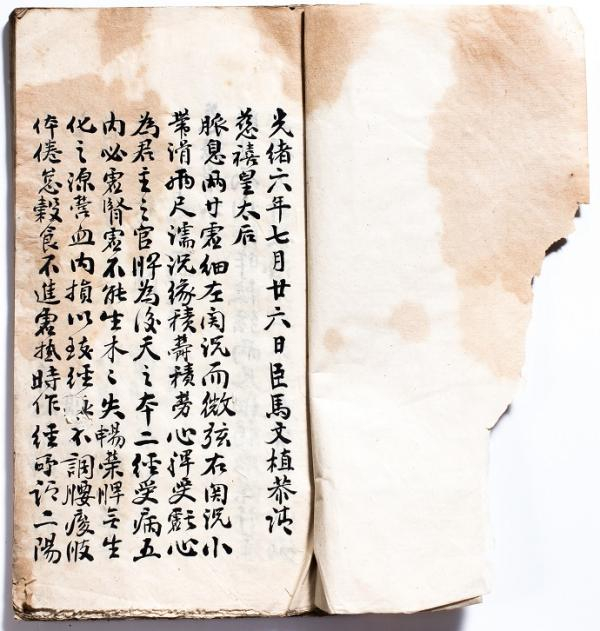 光緒六年七月廿六日臣馬文植恭請
慈禧皇太后
脈息兩寸虛細左関沉而微弦右関沉小
帶滑兩尺濡沉緣積鬱積勞心脾受虧心
為君主之官脾為後天之本二經受病五
內必虛腎虛不能生木〻失暢榮脾乏生
化之源營血內損以致經不調腰痠肢
体倦怠穀食不進虛熱時作經所謂二陽